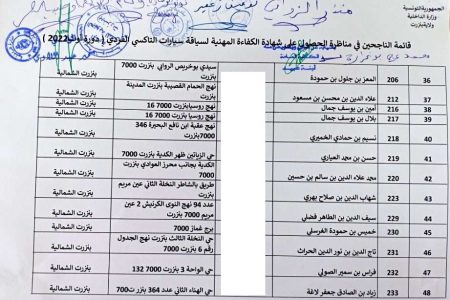 الجمهورية التونسية
وزارة الداخلية
ولاية بنزرت
قائمة الناجحين في مناظرة الحصول على شهادة الكفاءة المهنية لسياقة سيارات التاكسي الفردي ( دورة أوت 2022 )
36 206 المعز بن جلول بن حمودة سيدي بوخريص الروابي بنزرت 7000 بنزرت الشمالية
37 212 علاء الدين بن محسن بن مسعود نهج الحمام القصيبة بنزرت المدينة بنزرت الشمالية
38 216 أمين بن يوسف جمال نهج روسيا بنزرت 7000 16 بنزرت الشمالية
39 217 بلال بن يوسف جمال نهج روسيا بنزرت 7000 16 بنزرت الشمالية
40 218 نسيم بن حمادي الخميري نهج عقبة ابن نافع البحيرة 346 بنزرت 7000 بنزرت الشمالية
41 220 حسن بن محمد العياري حي الزياتين ظهر الكدية بنزرت 7000 بنزرت الشمالية
42 221 محمد علاء الدين بن سالم بن حسين الكدية بجانب محرز العوادي بنزرت 7000 بنزرت الشمالية
43 223 شهاب الدين بن صلاح بهري طريق بالشاطر النخلة الثاني عين مريم بنزرت 7000 بنزرت الشمالية
44 225 سيف الدين بن الطاهر فضلي عدد 94 نهج النوى الكرنيش 2 عين مريم 7000 بنزرت بنزرت الشمالية
45 228 خميس بن حمودة الغرسلي برج غماز 7000 بنزرت الشمالية
46 231 تاج الدين بن نور الدين الحراث حي النخلة الثالث بنزرت نهج الجدول رقم 6 بنزرت 7000 بنزرت الشمالية
47 232 فراس بن سمير الصولي حي الواحة 3 بنزرت 7000 132 بنزرت الشمالية
48 233 زياد بن الصادق جعفر لاغة حي الهناء الثاني عدد 364 بنزرت 700 بنزرت الشمالية